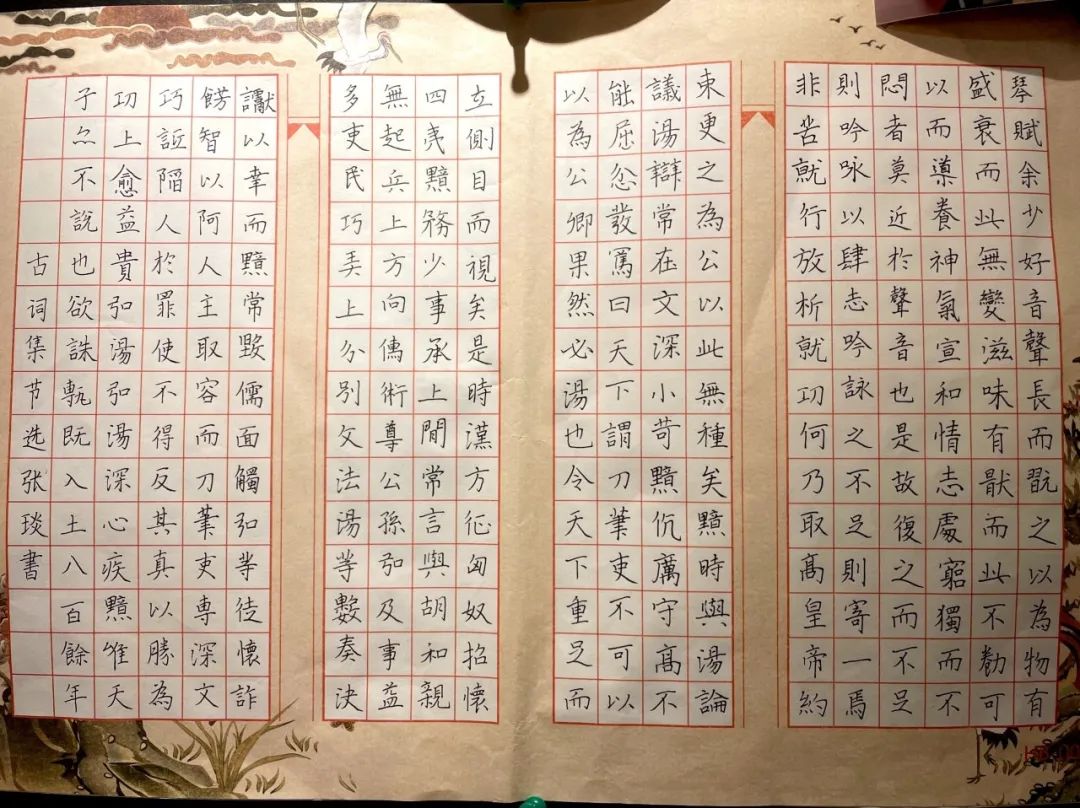 琴賦余少好音聲長而翫之以為物有
盛衰而此無變滋味有猒而此不勌可
以而導養神氣宣和情志處窮獨而不
悶者莫近於聲音也是故復之而不足
則吟咏以肆志吟詠之不足則寄一焉
非苦就行放析就功何乃取高皇帝約
束更之為公以此無種矣黯時與湯論
議湯辯常在文深小苛黯伉厲守高不
能屈忿發罵曰天下謂刀筆吏不可以
以為公卿果然必湯也令天下重足而
立側目而視矣是時漢方征匈奴招懷
四夷黯務少事承上閒常言與胡和親
無起兵上方向儒術尊公孫弘及事益
多吏民巧弄上分別文法湯等數奏決
讞以幸而黯常毀儒面觸弘等徒懷詐
飾智以阿人主取容而刀筆吏專深文
巧詆陷人於罪使不得反其真以勝為
功上愈益貴弘湯弘湯深心疾黯唯天
子亦不說也欲誅執既入土八百餘年
古词集节选张琰书